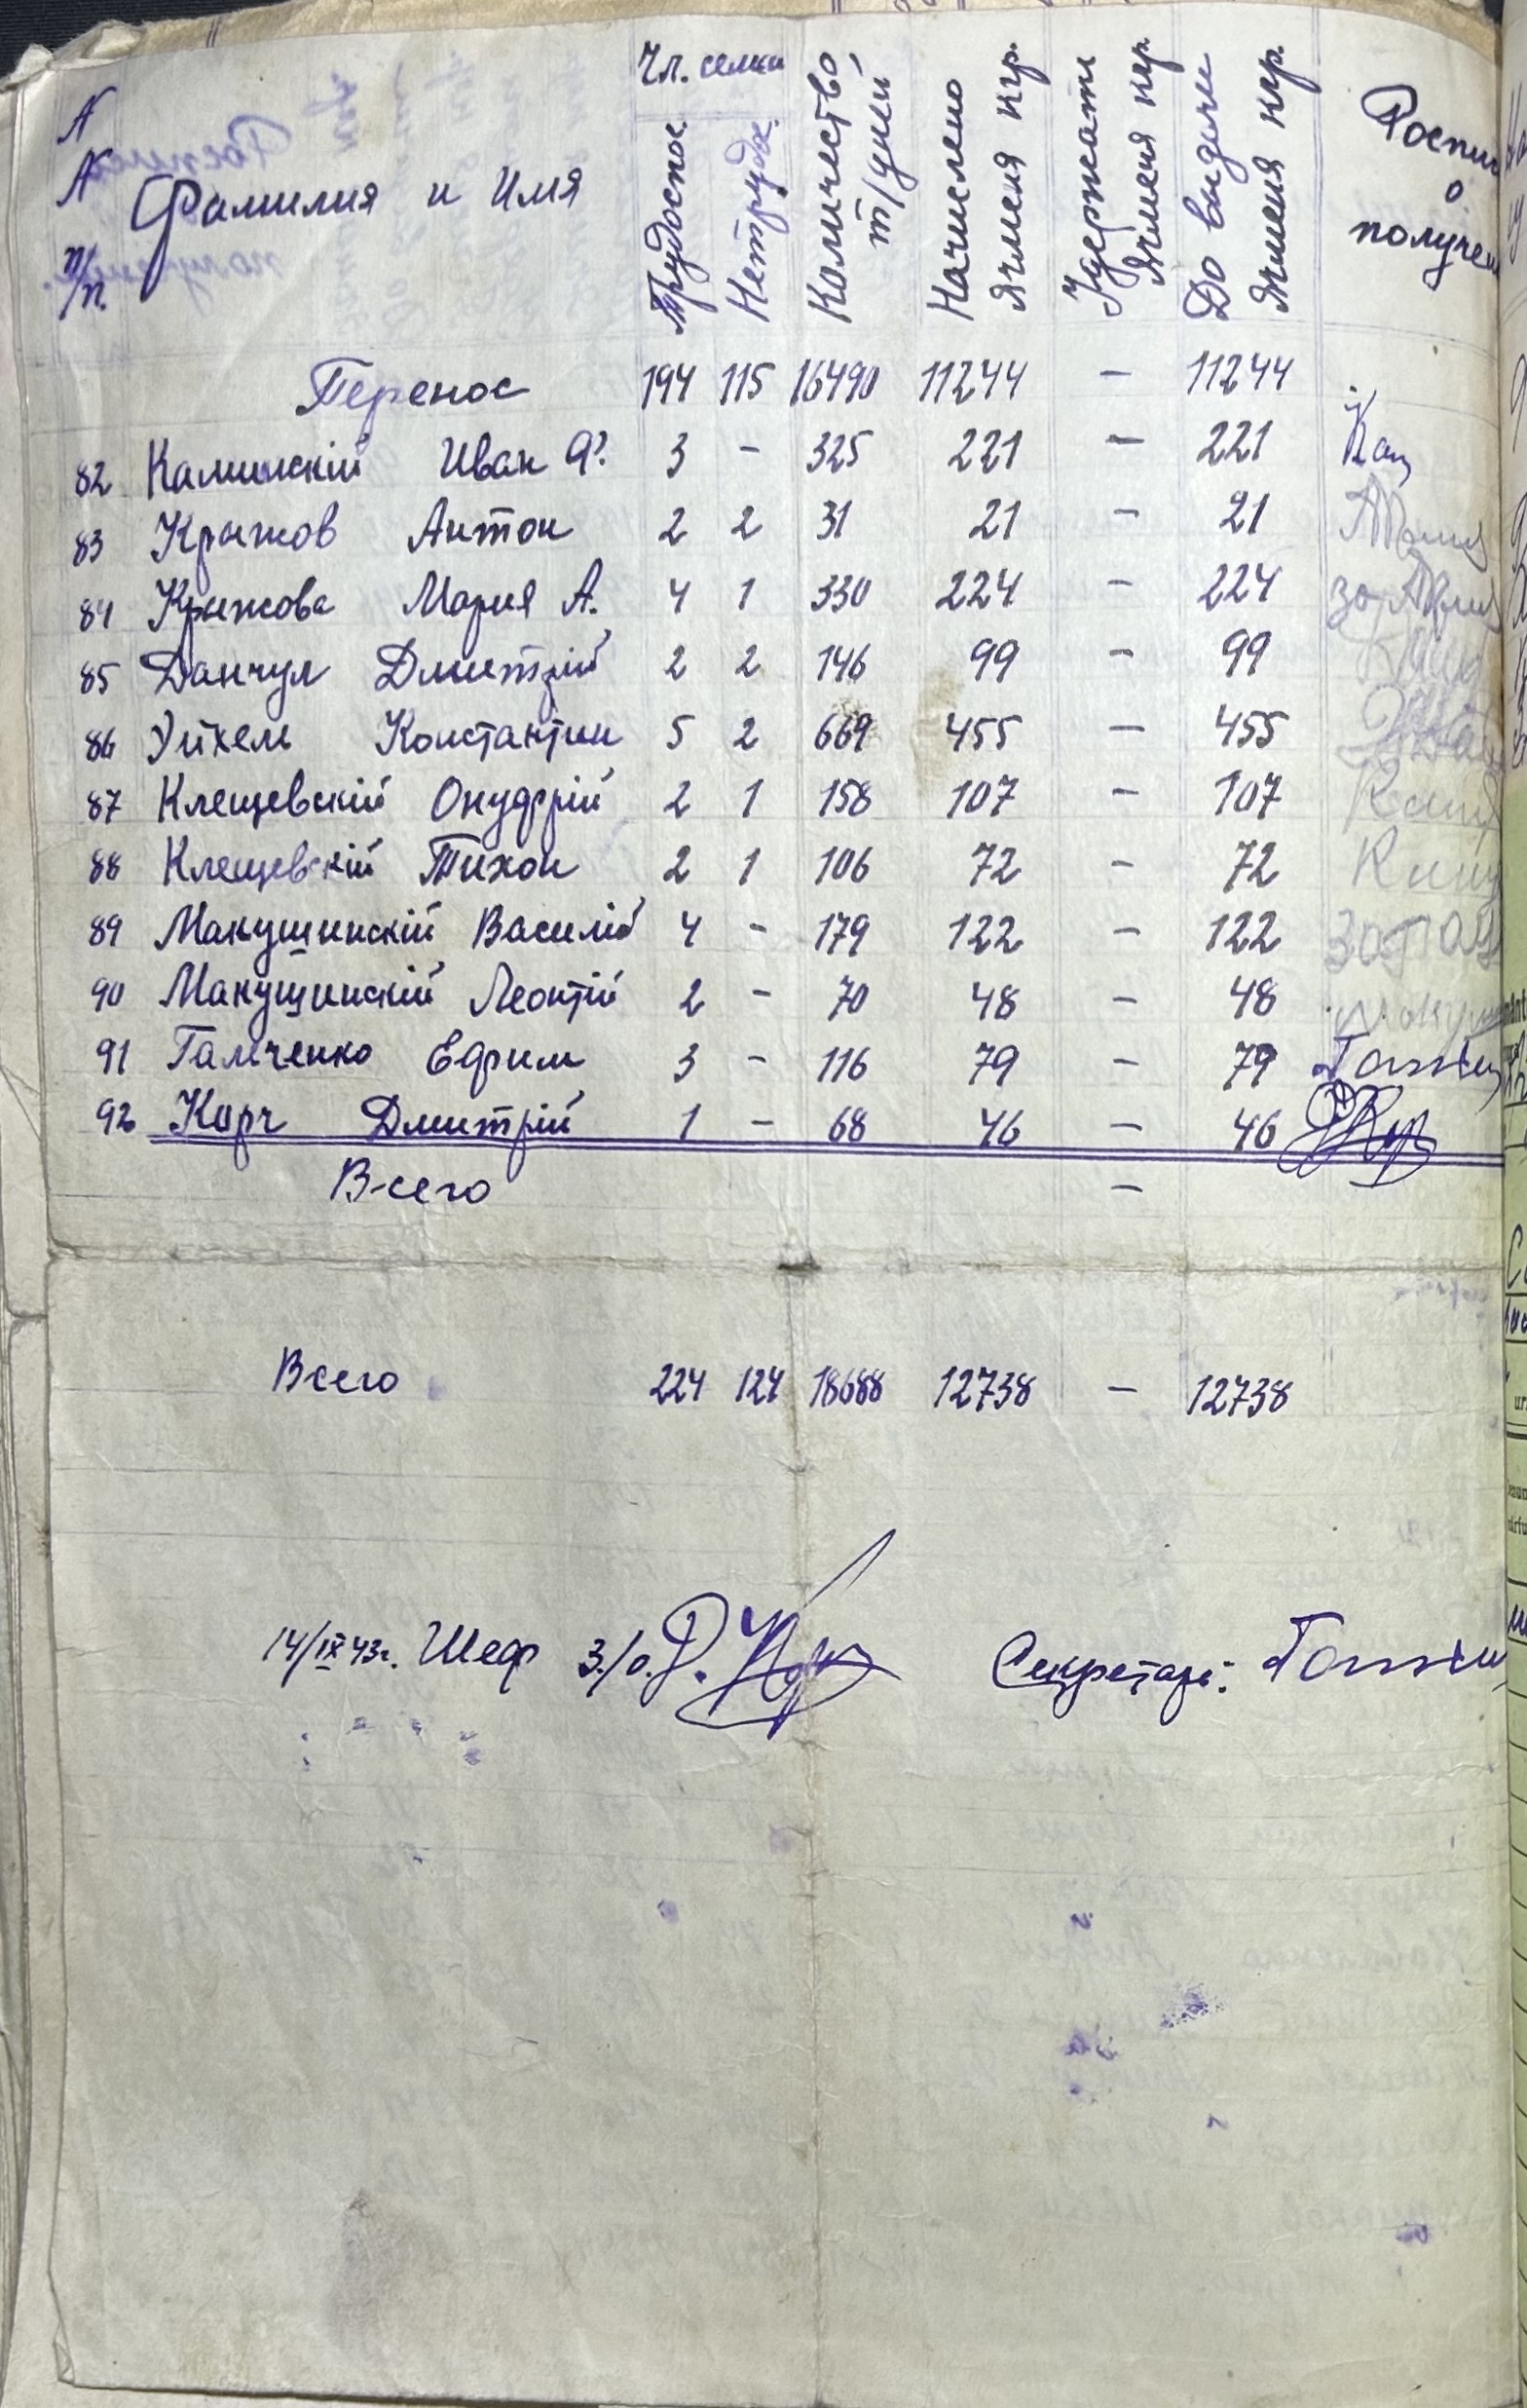 Чл. семьи
№ № п/п. Фамилия и Имя Трудоспос. Нетрудос. Количество т/дней Начислено Ячменя кгр. Удержать Ячменя кгр. До выдачи Ячменя кгр. Роспис о получен
Перенос 194 115 16490 11244 - 11244
82 Каминскій Иван Ф. 3 - 325 221 - 221
83 Крыжов Антон 2 2 31 21 - 21
84 Крыжова Мария А. 4 1 330 224 - 224 за
85 Данчул Дмитрій 2 2 146 99 - 99
86 Уйхели Константин 5 2 669 455 - 455
87 Клещевскій Онуфрій 2 1 158 107 - 107
88 Клещевскій Тихон 2 1 106 72 - 72
89 Макушинскій Василій 4 - 179 122 - 122
90 Макушинскій Леонтій 2 - 70 48 - 48
91 Гамченко Ефим 3 - 116 79 - 79
92 Корч Дмитрій 1 - 68 46 - 46
Всего -
Всего 224 124 18688 12738 - 12738
14/IX 43г. Шеф З./о. Секретарь: